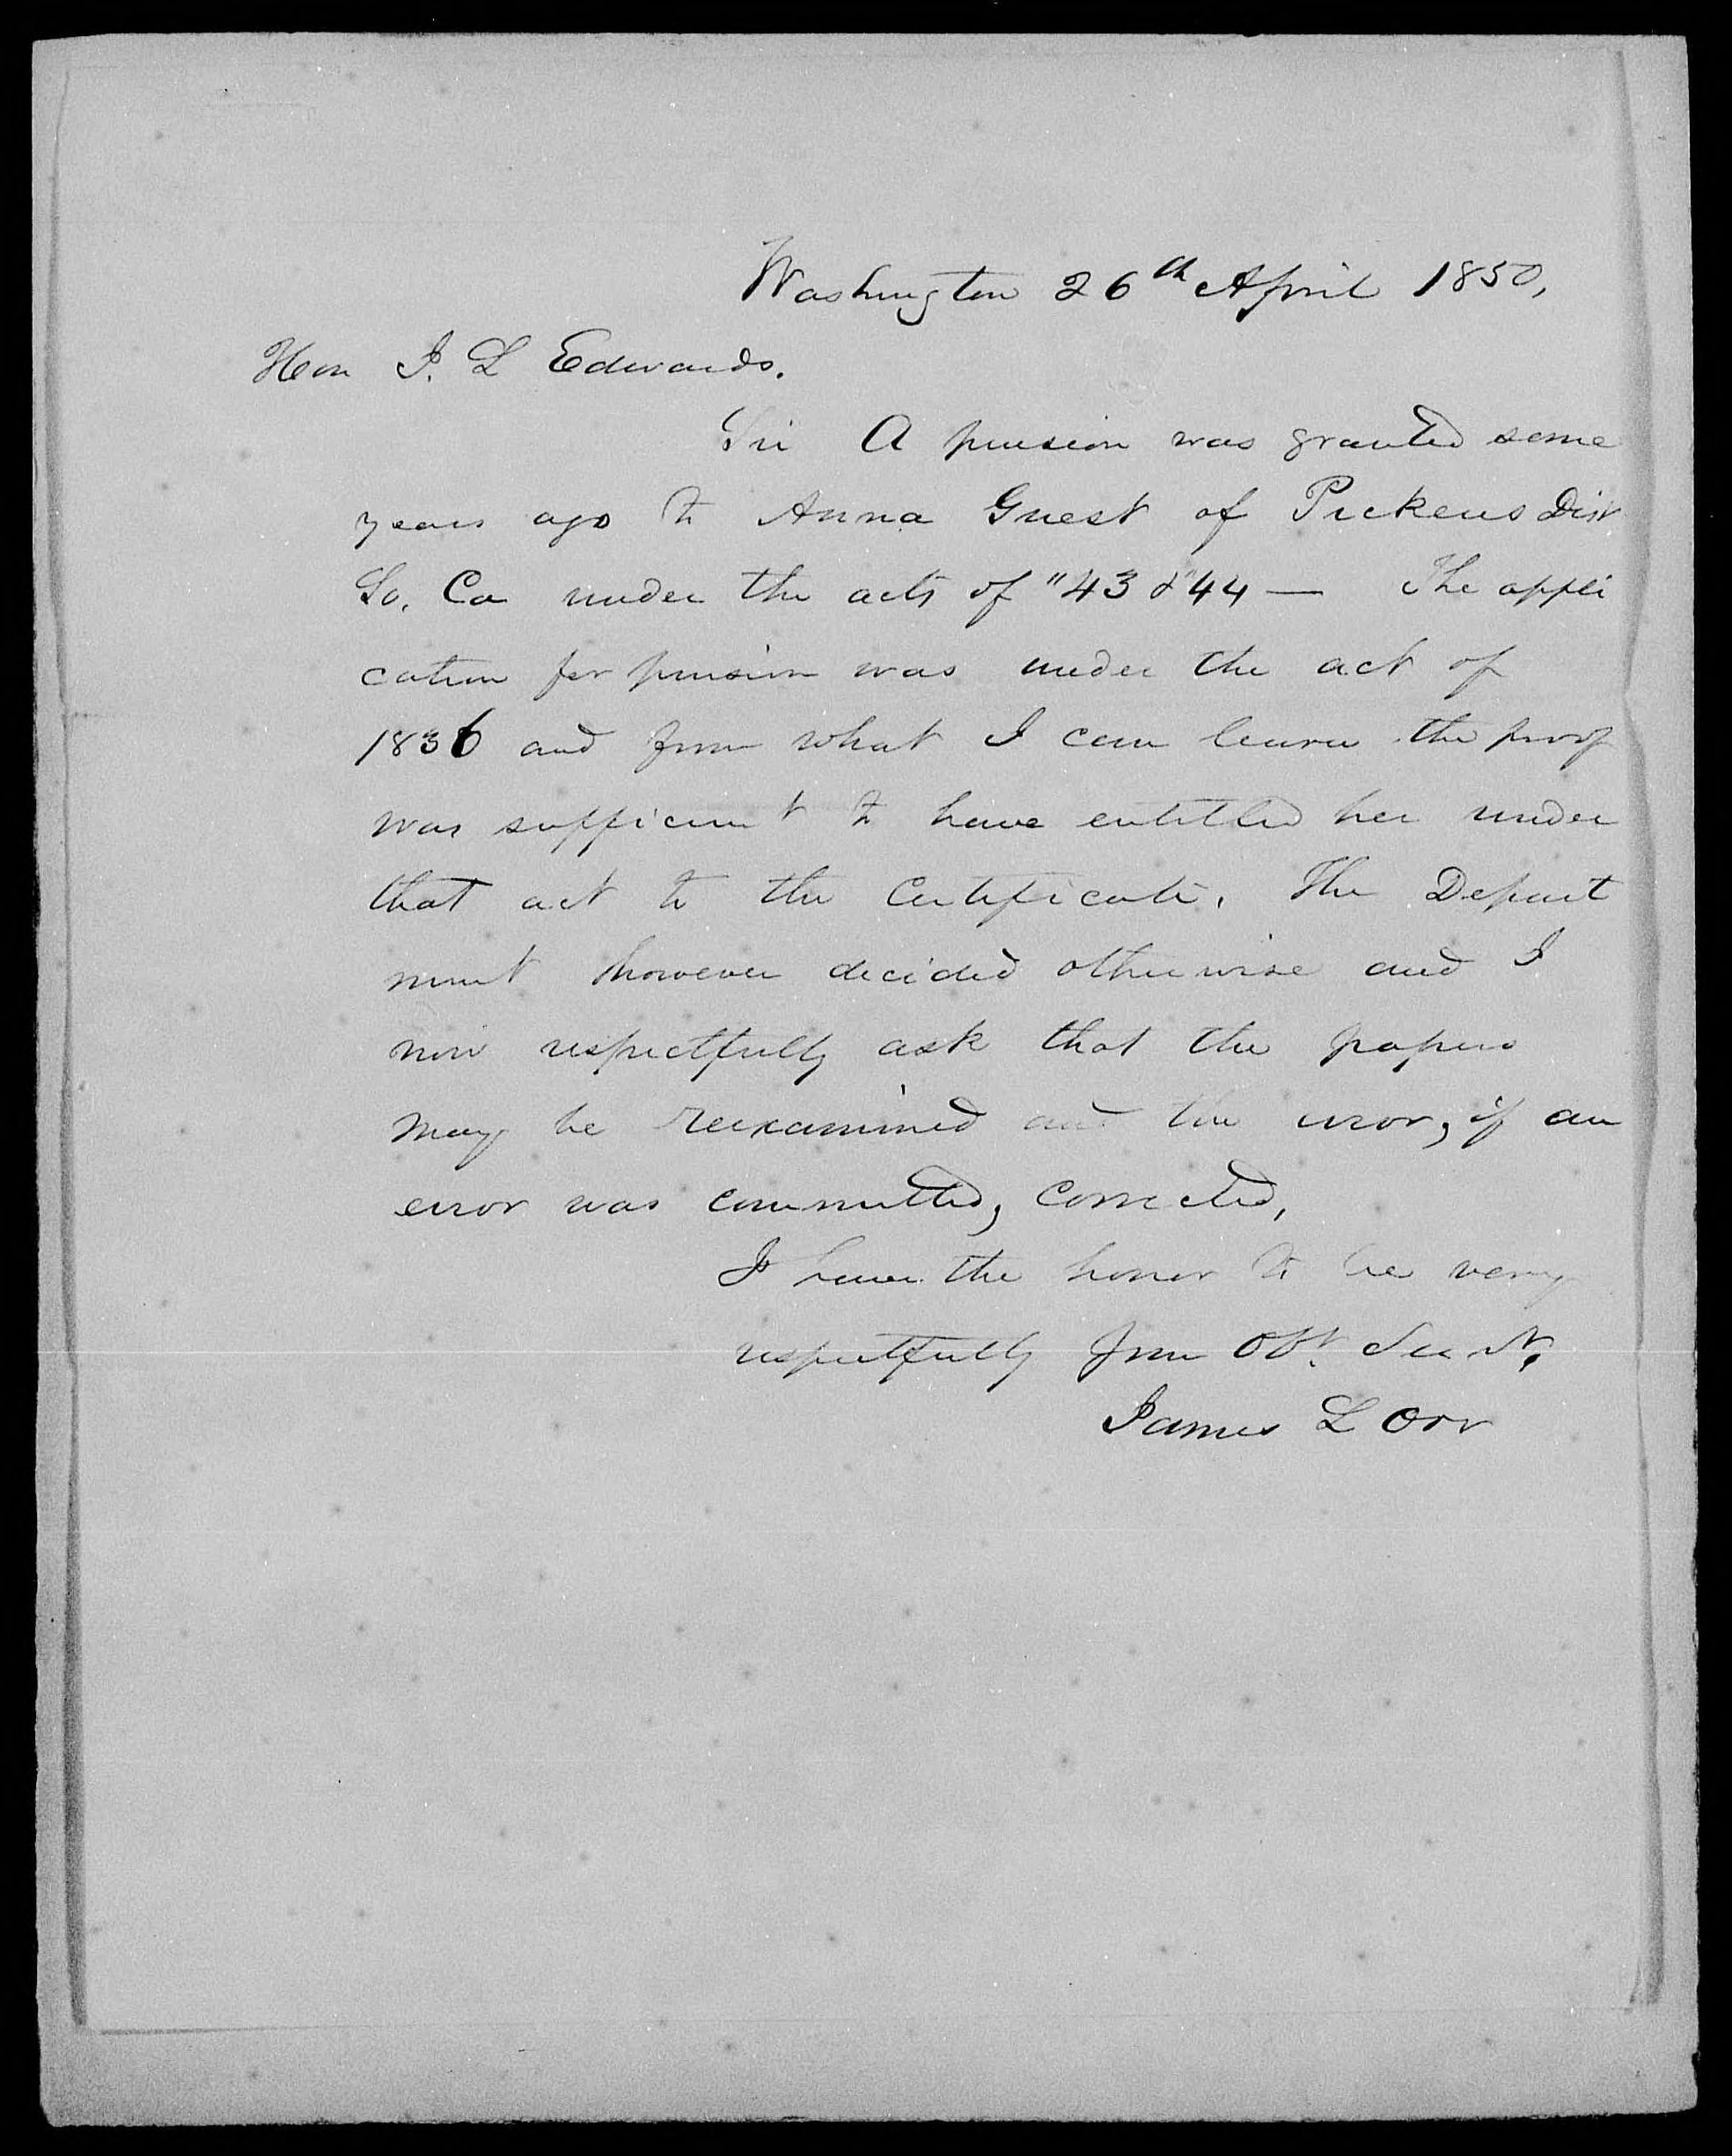 Washington 26th April 1850,
Hon J. L Edwards.
Sir A pension was granted some
years ago to Anna Guest of Pickens Dist
So. Ca under the acts of "43 & "44 — The appli
cation for pension was under the act of
1836 and from what I can learn the proof
was sufficient to have entitled her under
that act to the Certificate. The Depart
ment however decided otherwise and I
now respectfully ask that the papers
may be reexamined and the error, if an
error was committed, corrected,
I have the honor to be very
respectfully Your Obt. Servt,
James L Orr